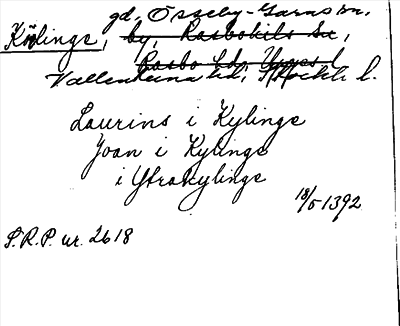 gd, Össeby-Garns sn,
Källinge, by, Rasbokils sn,
Rasbo hd, Upps l
Vallentuna hd, Stockh l.
Laurins i Kylinge
Joan i Kylinge
i Ytrakylinge
18/5 1392
S.R.P. nr. 2618